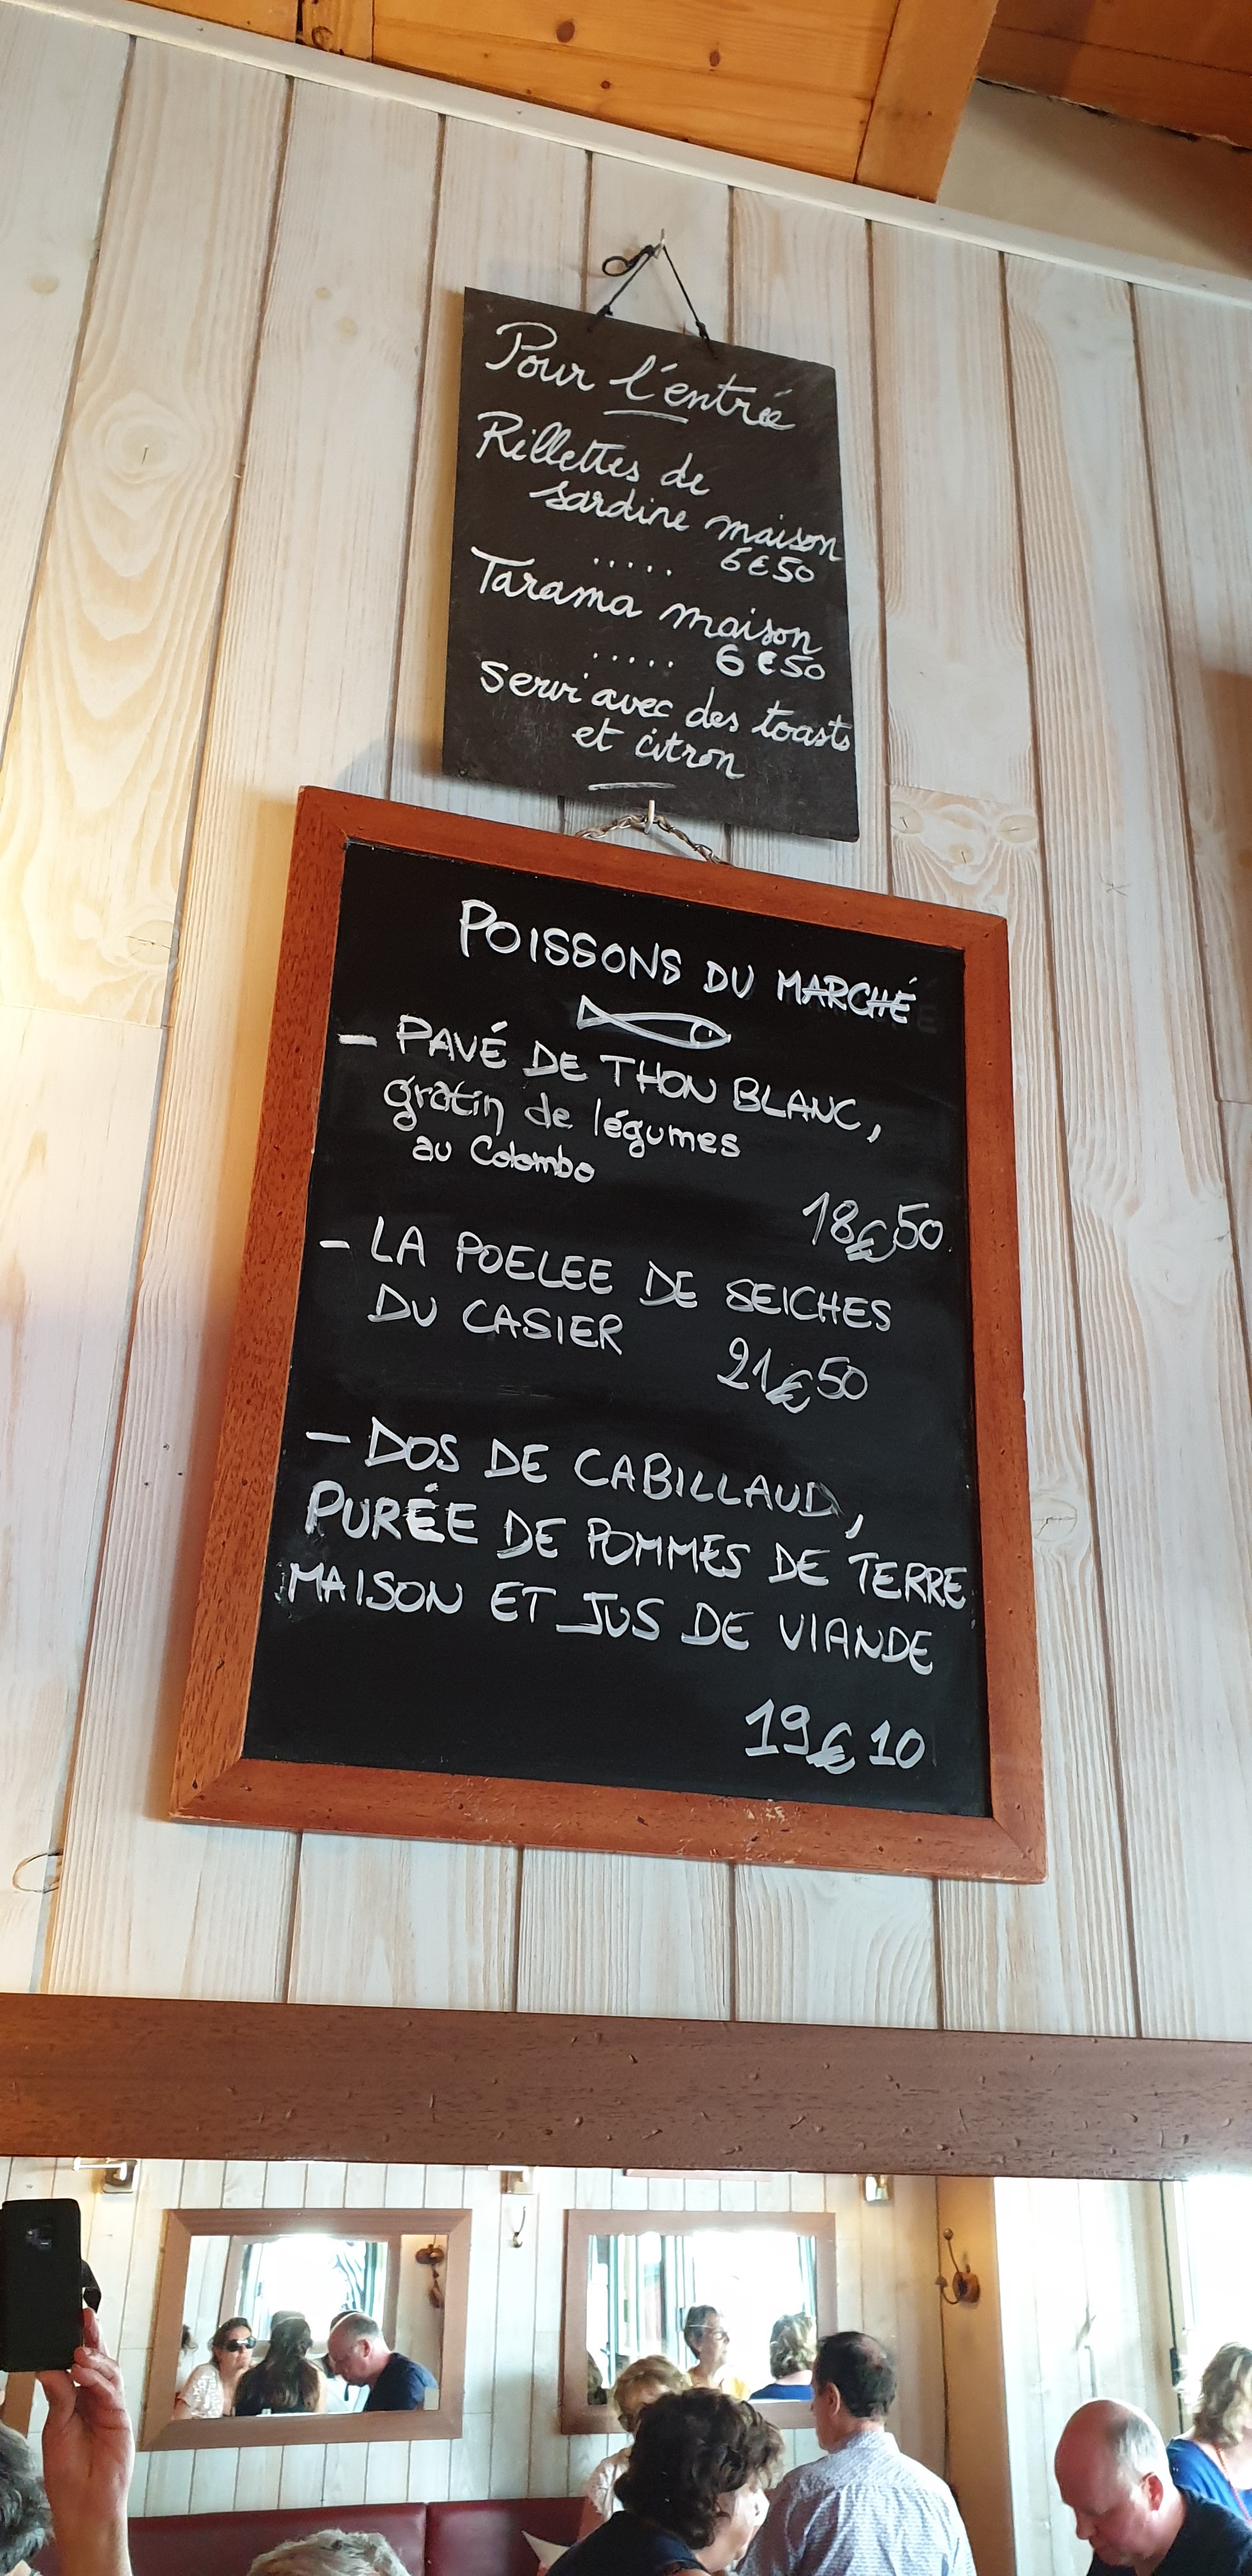 Pour l'entrée
Rillettes de
sardine maison
..... 6€50
Tarama maison
..... 6€50
Servi avec des toasts
et citron
POISSONS DU MARCHÉ
- PAVÉ DE THON BLANC,
gratin de légumes
au Colombo
18€50
- LA POELEE DE SEICHES
DU CASIER 21€50
- DOS DE CABILLAUD,
PURÉE DE POMMES DE TERRE
MAISON ET JUS DE VIANDE
19€10